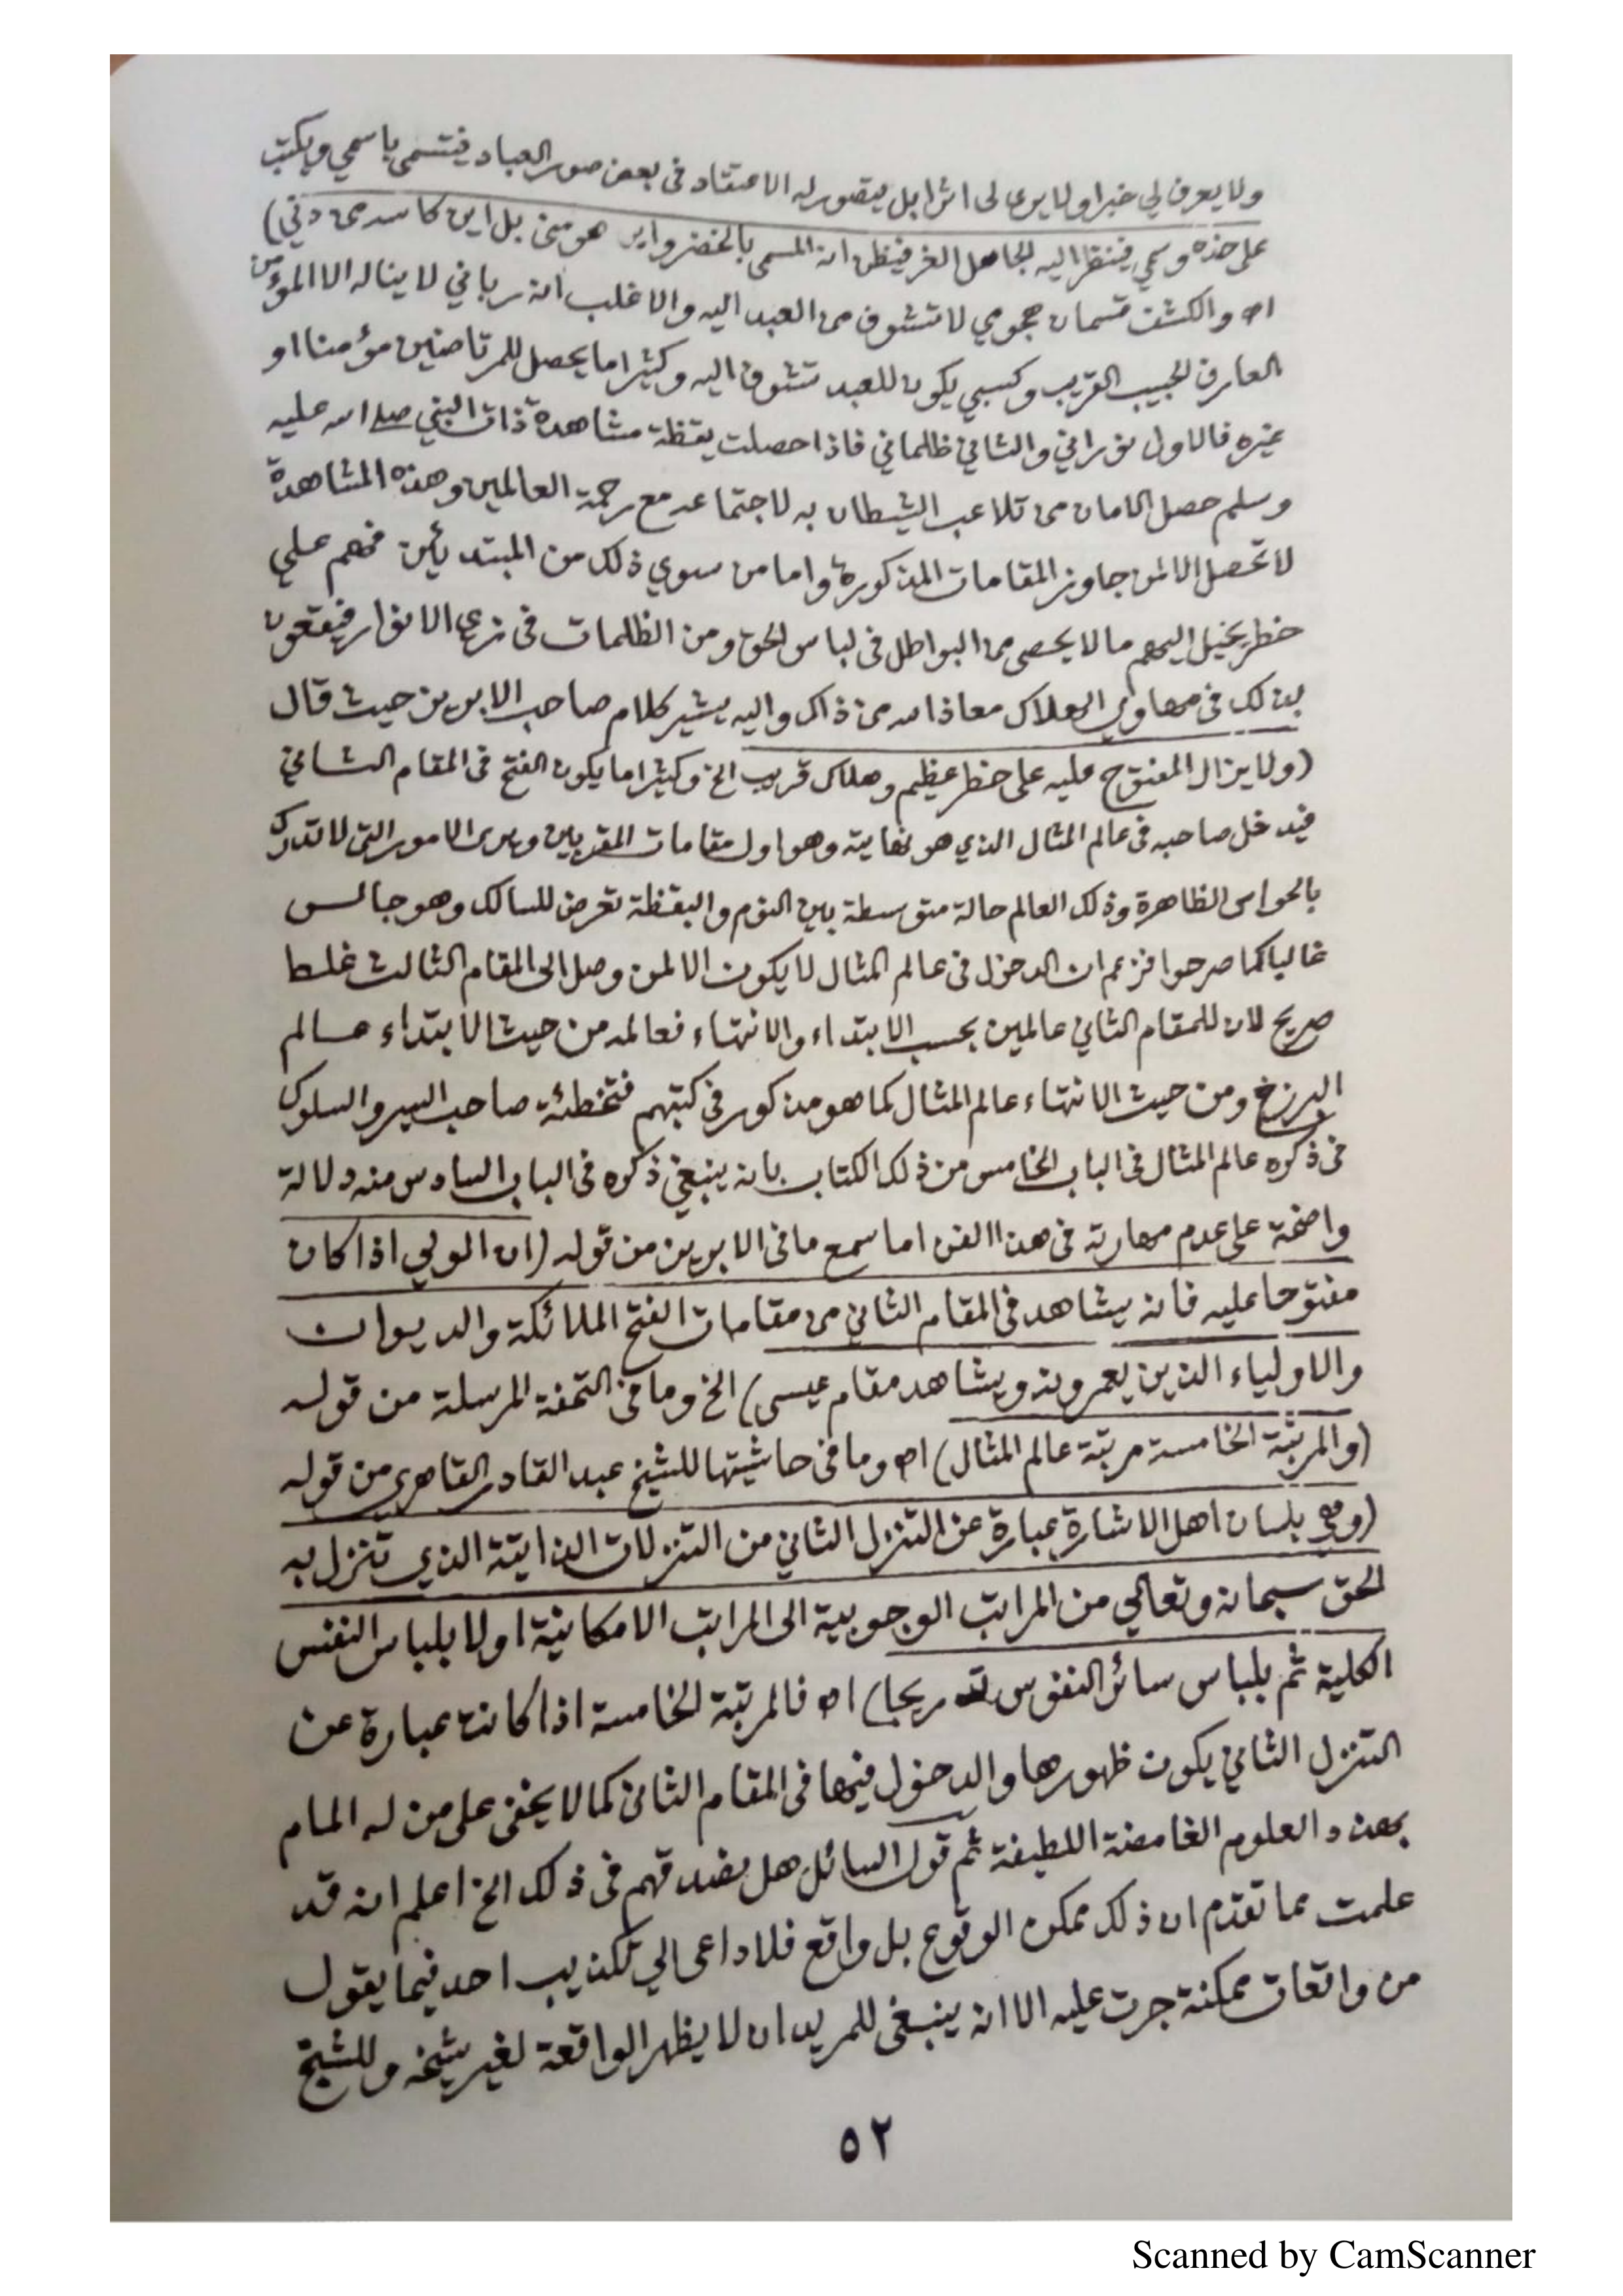 ولا يعرف لي خبرا ولا يرى لى اثرا بل يتصور له الاعتقاد فى بعض صور العباد فيتسمى باسمي ويكتب
على خده وسمي فينظر اليه الجاهل الغر فيظن انه المسمى بالخضر واين هو منى بل اين كاسه من دني)
اه والكشف قسمان هجومي لا تشوف من العبد اليه والاغلب انه رباني لا يناله الا المؤمن
العارف الحبيب القريب وكسبي يكون للعبد تشوف اليه وكثيرا ما يحصل للمرتاضين مؤمنا او
غيره فالاول نوراني والثاني ظلماني فاذا حصلت يقظة مشاهدة ذات النبي صلى الله عليه
وسلم حصل الامان من تلاعب الشيطان به لاجتماعه مع رحمة العالمين وهذه المشاهدة
لا تحصل الا لمن جاوز المقامات المذكورة واما من سوي ذلك من المبتدئين فهم علي
خطر يخيل اليهم ما لا يحصى من البواطل فى لباس الحق ومن الظلمات فى زي الانوار فيقعون
بذلك فى مهاوي الهلاك معاذ الله من ذاك واليه يشير كلام صاحب الابريز حيث قال
(ولا يزال المفتوح عليه على خطر عظيم وهلاك قريب الخ وكثيرا ما يكون الفتح فى المقام الثاني
فيدخل صاحبه فى عالم المثال الذي هو نهايته وهو اول مقامات المقربين ويرى الامور التى لا تدرك
بالحواس الظاهرة وذلك العالم حالة متوسطة بين النوم واليقظة تعرض للسالك وهو جالس
غالبا كما صرحوا فزعم ان الدخول فى عالم المثال لا يكون الا لمن وصل الى المقام الثالث غلط
صريح لان للمقام الثاني عالمين بحسب الابتداء والانتهاء فعالمه من حيث الابتداء عالم
البرزخ ومن حيث الانتهاء عالم المثال كما هو مذكور فى كتبهم فتخطئة صاحب السير والسلوك
فى ذكره عالم المثال فى الباب الخامس من ذلك الكتاب بانه ينبغي ذكره فى الباب السادس منه دلالة
واضحة على عدم مهارته فى هذا الفن اما سمع ما فى الابريز من قوله (ان الولي اذا كان
مفتوحا عليه فانه يشاهد فى المقام الثاني من مقامات الفتح الملائكة والديوان
والاولياء الذين يعمرونه ويشاهد مقام عيسى) الخ وما فى التحفة المرسلة من قوله
(والمرتبة الخامسة مرتبة عالم المثال) اه وما فى حاشيتها للشيخ عبد القادر القاهري من قوله
(وهي بلسان اهل الاشارة عبارة عن التنزل الثاني من التنزلات الذاتية الذي تنزل به
الحق سبحانه وتعالي من المراتب الوجوبية الى المراتب الامكانية اولا بلباس النفس
الكلية ثم بلباس سائر النفوس تدريجا) اه فالمرتبة الخامسة اذا كانت عبارة عن
التنزل الثاني يكون ظهورها والدخول فيها فى المقام الثانى كما لا يخفى على من له المام
بهذه العلوم الغامضة اللطيفة ثم قول السائل هل يصدقهم فى ذلك الخ اعلم انه قد
علمت مما تقدم ان ذلك ممكن الوقوع بل واقع فلا داعى الي تكذيب احد فيما يقول
من واقعات ممكنة جرت عليه الا انه ينبغى للمريد ان لا يظهر الواقعة لغير شيخه وللشيخ
٥٢
Scanned by CamScanner